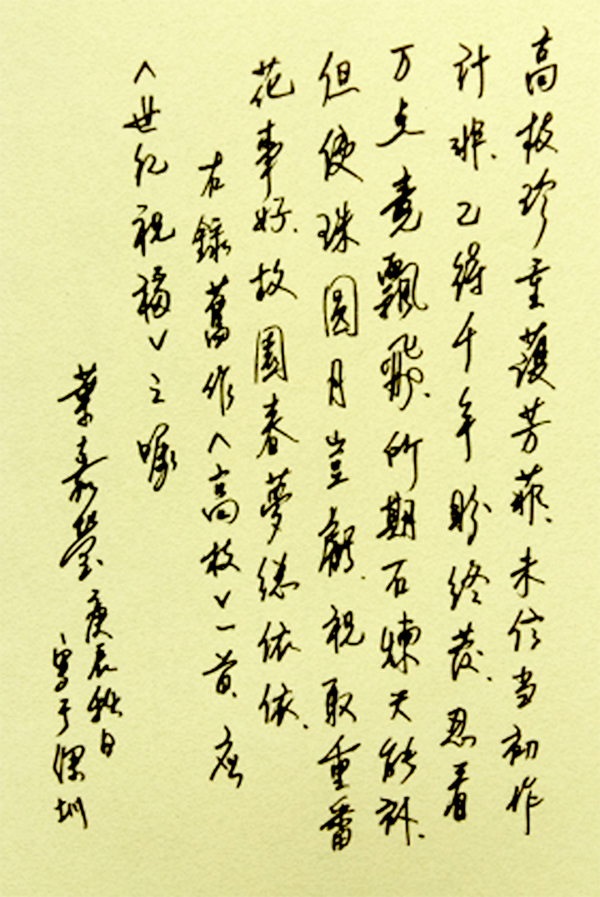 高枝珍重護芳菲、未信当初作
计非、已得千年盼终发、忍看
万点竟飄飛、所期石煉天能补、
但使珠圓月豈虧、祝取重番
花事好、故園春夢總依依、
右錄舊作〈高枝〉一首、应
〈世纪祝福〉之嘱
葉嘉瑩 庚辰秋日
寫于深圳